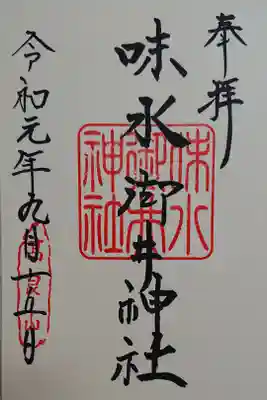 奉拝
味水御井神社
味水
御井
神社
令和元年九月十五日